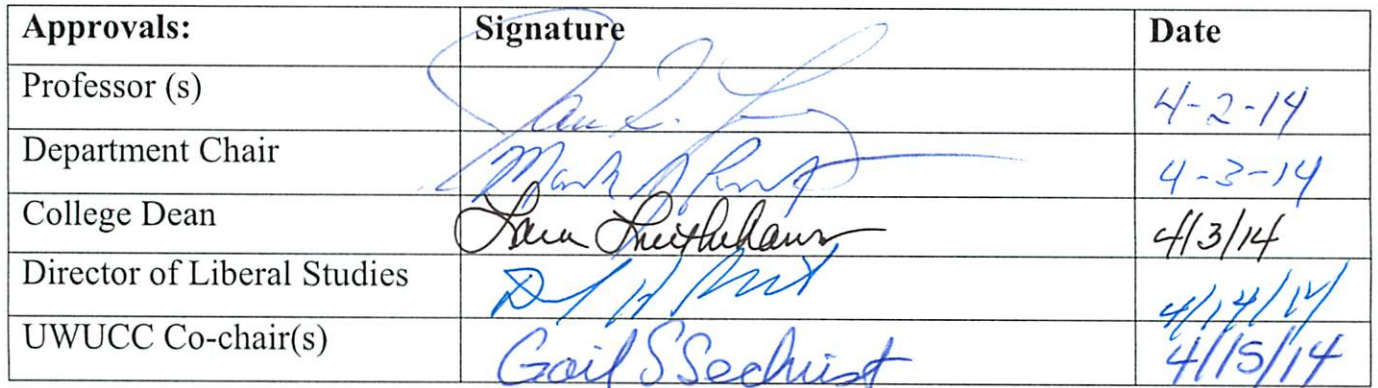 Approvals: Signature Date
Professor (s) 4-2-14
Department Chair Mark 4-3-14
College Dean 4/3/14
Director of Liberal Studies 4/14/14
UWUCC Co-chair(s) Gail S Sechrist 4/15/14